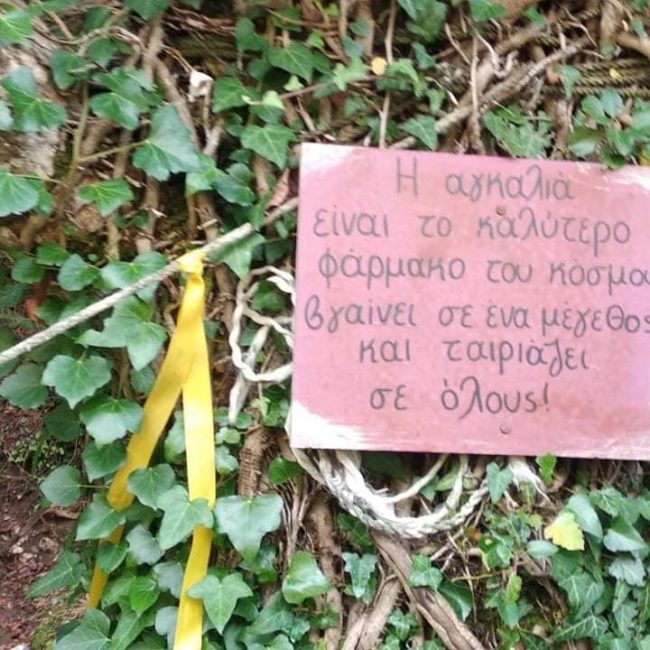 Η αγκαλιά
είναι το καλύτερο
φάρμακο του κόσμο
βγαίνει σε ένα μέγεθος
και ταιριάζει
σε όλους!